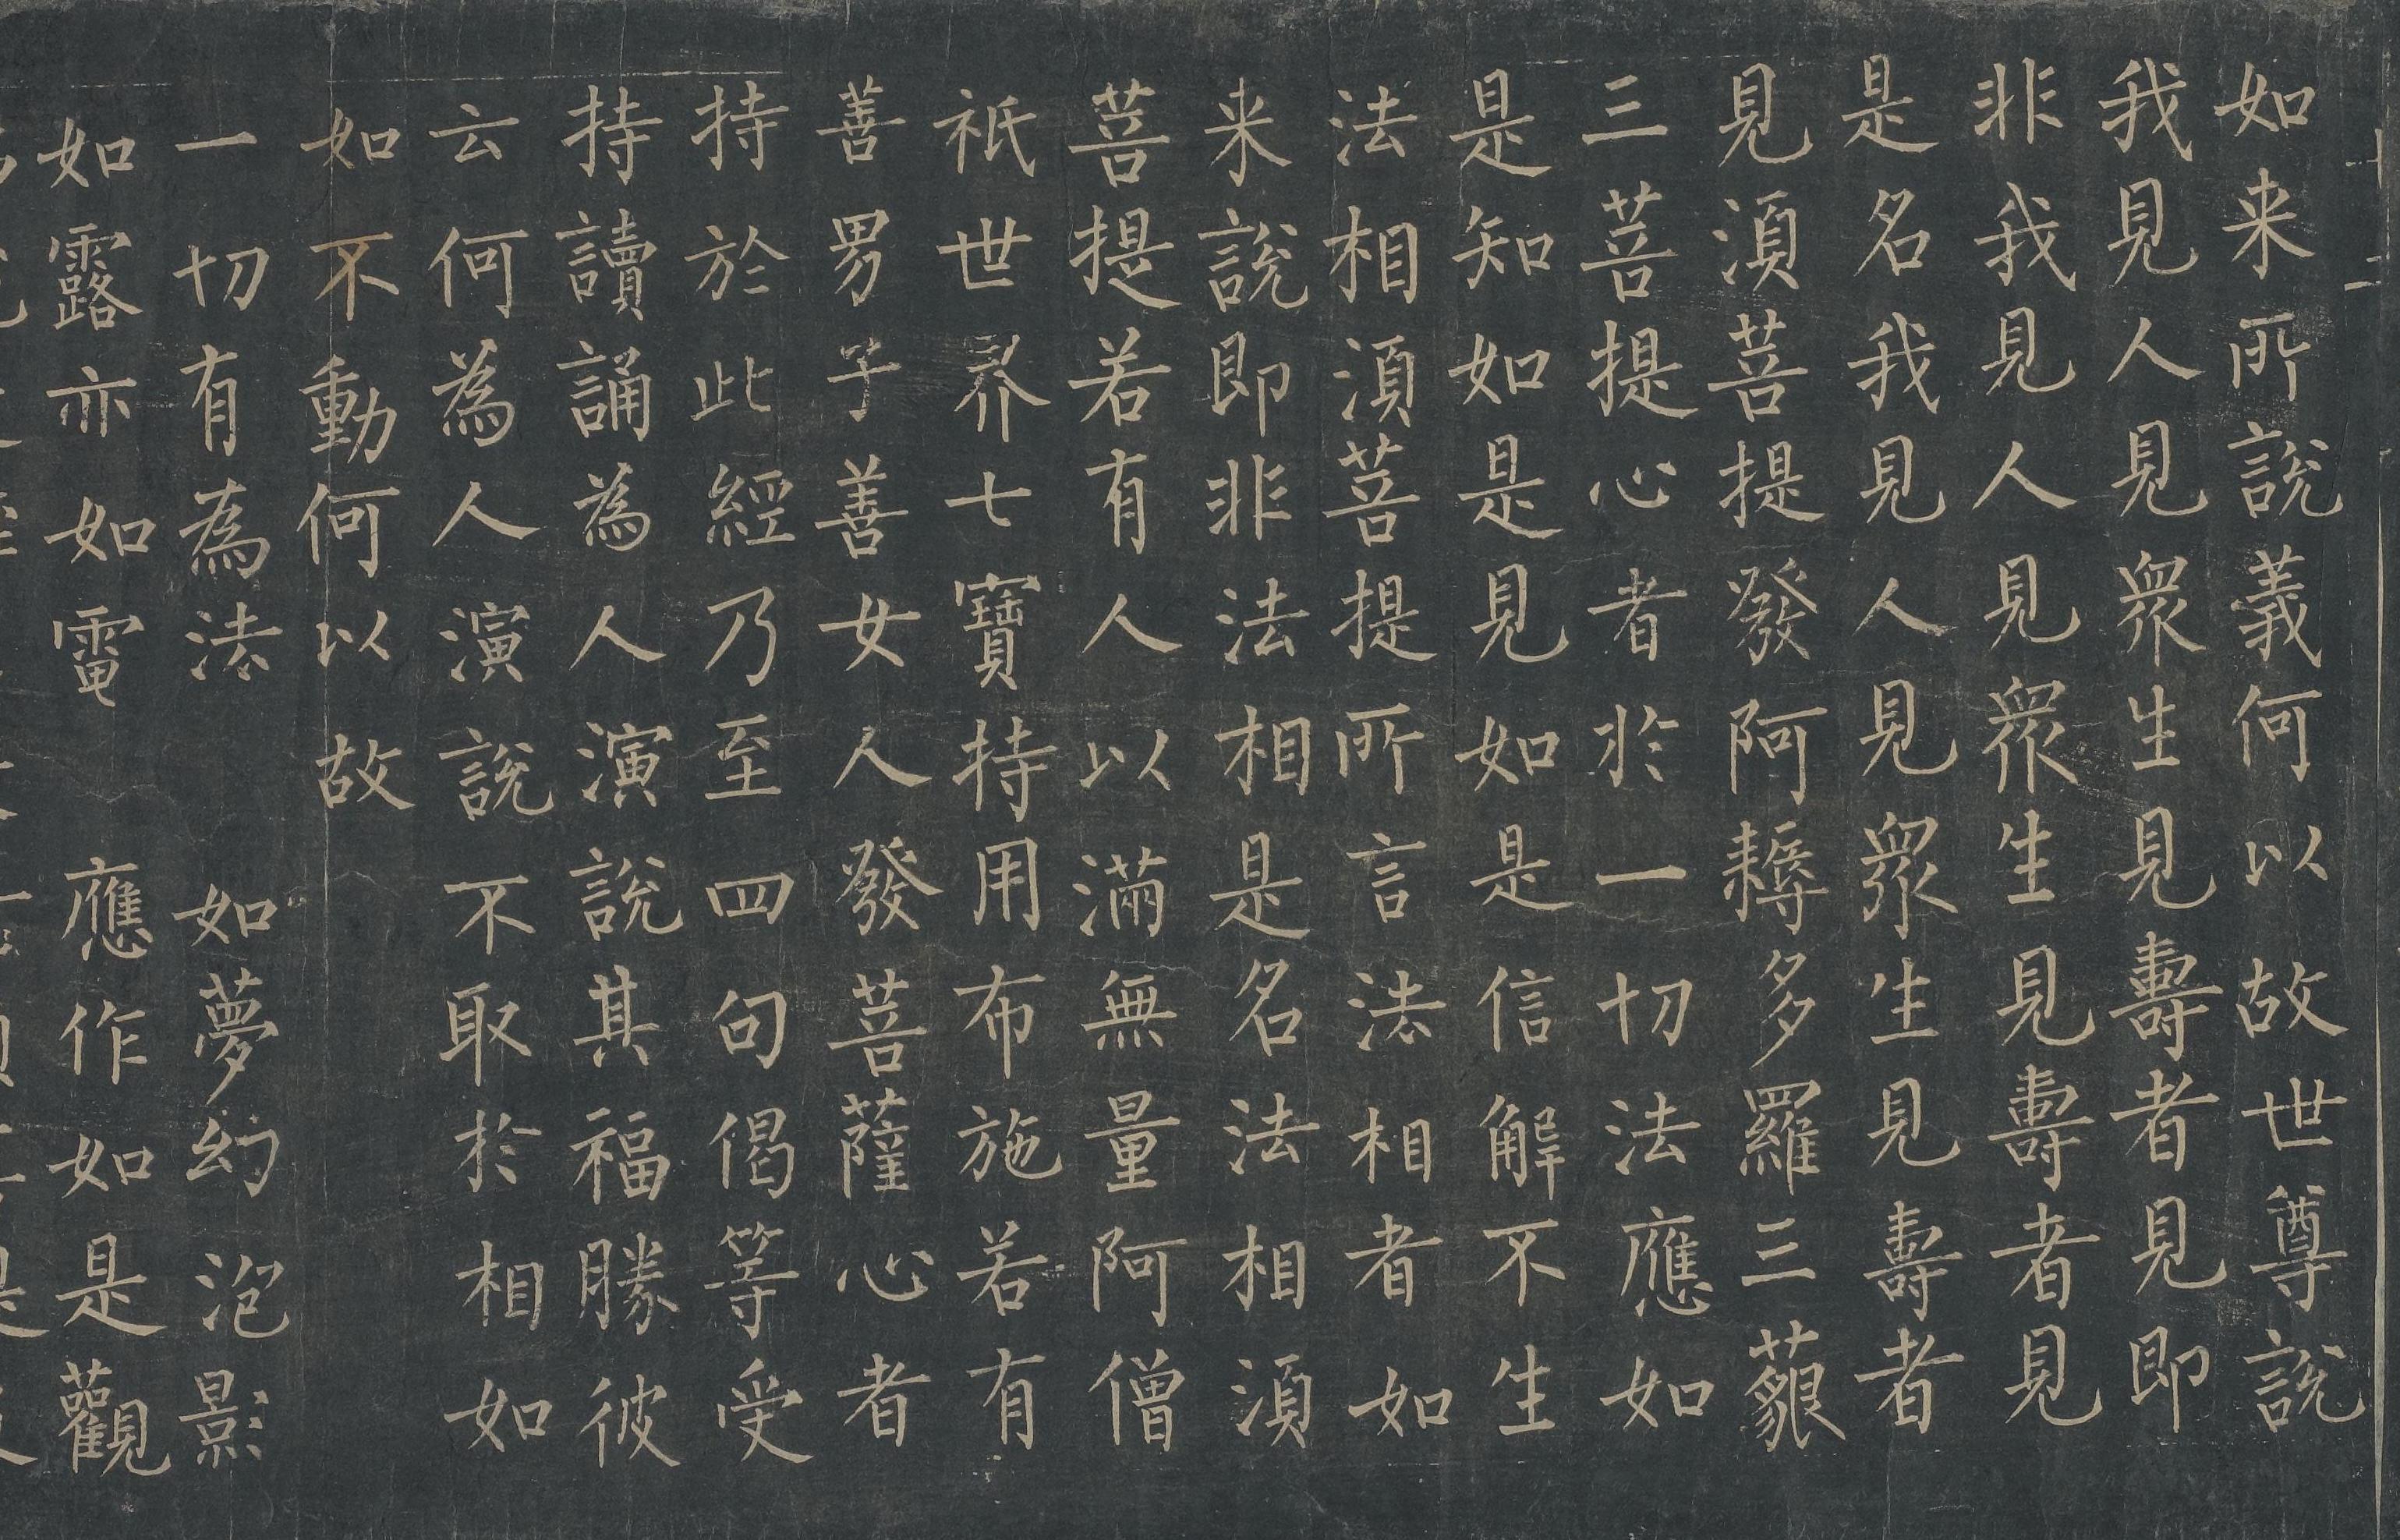 十二
如来所說義何以故世尊說
我見人見衆生見壽者見即
非我見人見衆生見壽者見
是名我見人見衆生見壽者
見湏菩提發阿耨多羅三藐
三菩提心者於一切法應如
是知如是見如是信解不生
法相湏菩提所言法相者如
来說即非法相是名法相湏
菩提若有人以滿無量阿僧
祇世界七寶持用布施若有
善男子善女人發菩薩心者
持於此經乃至四句偈等受
持讀誦為人演說其福勝彼
云何為人演說不取於相如
如不動何以故
一切有為法 如夢幻泡影
如露亦如電 應作如是觀